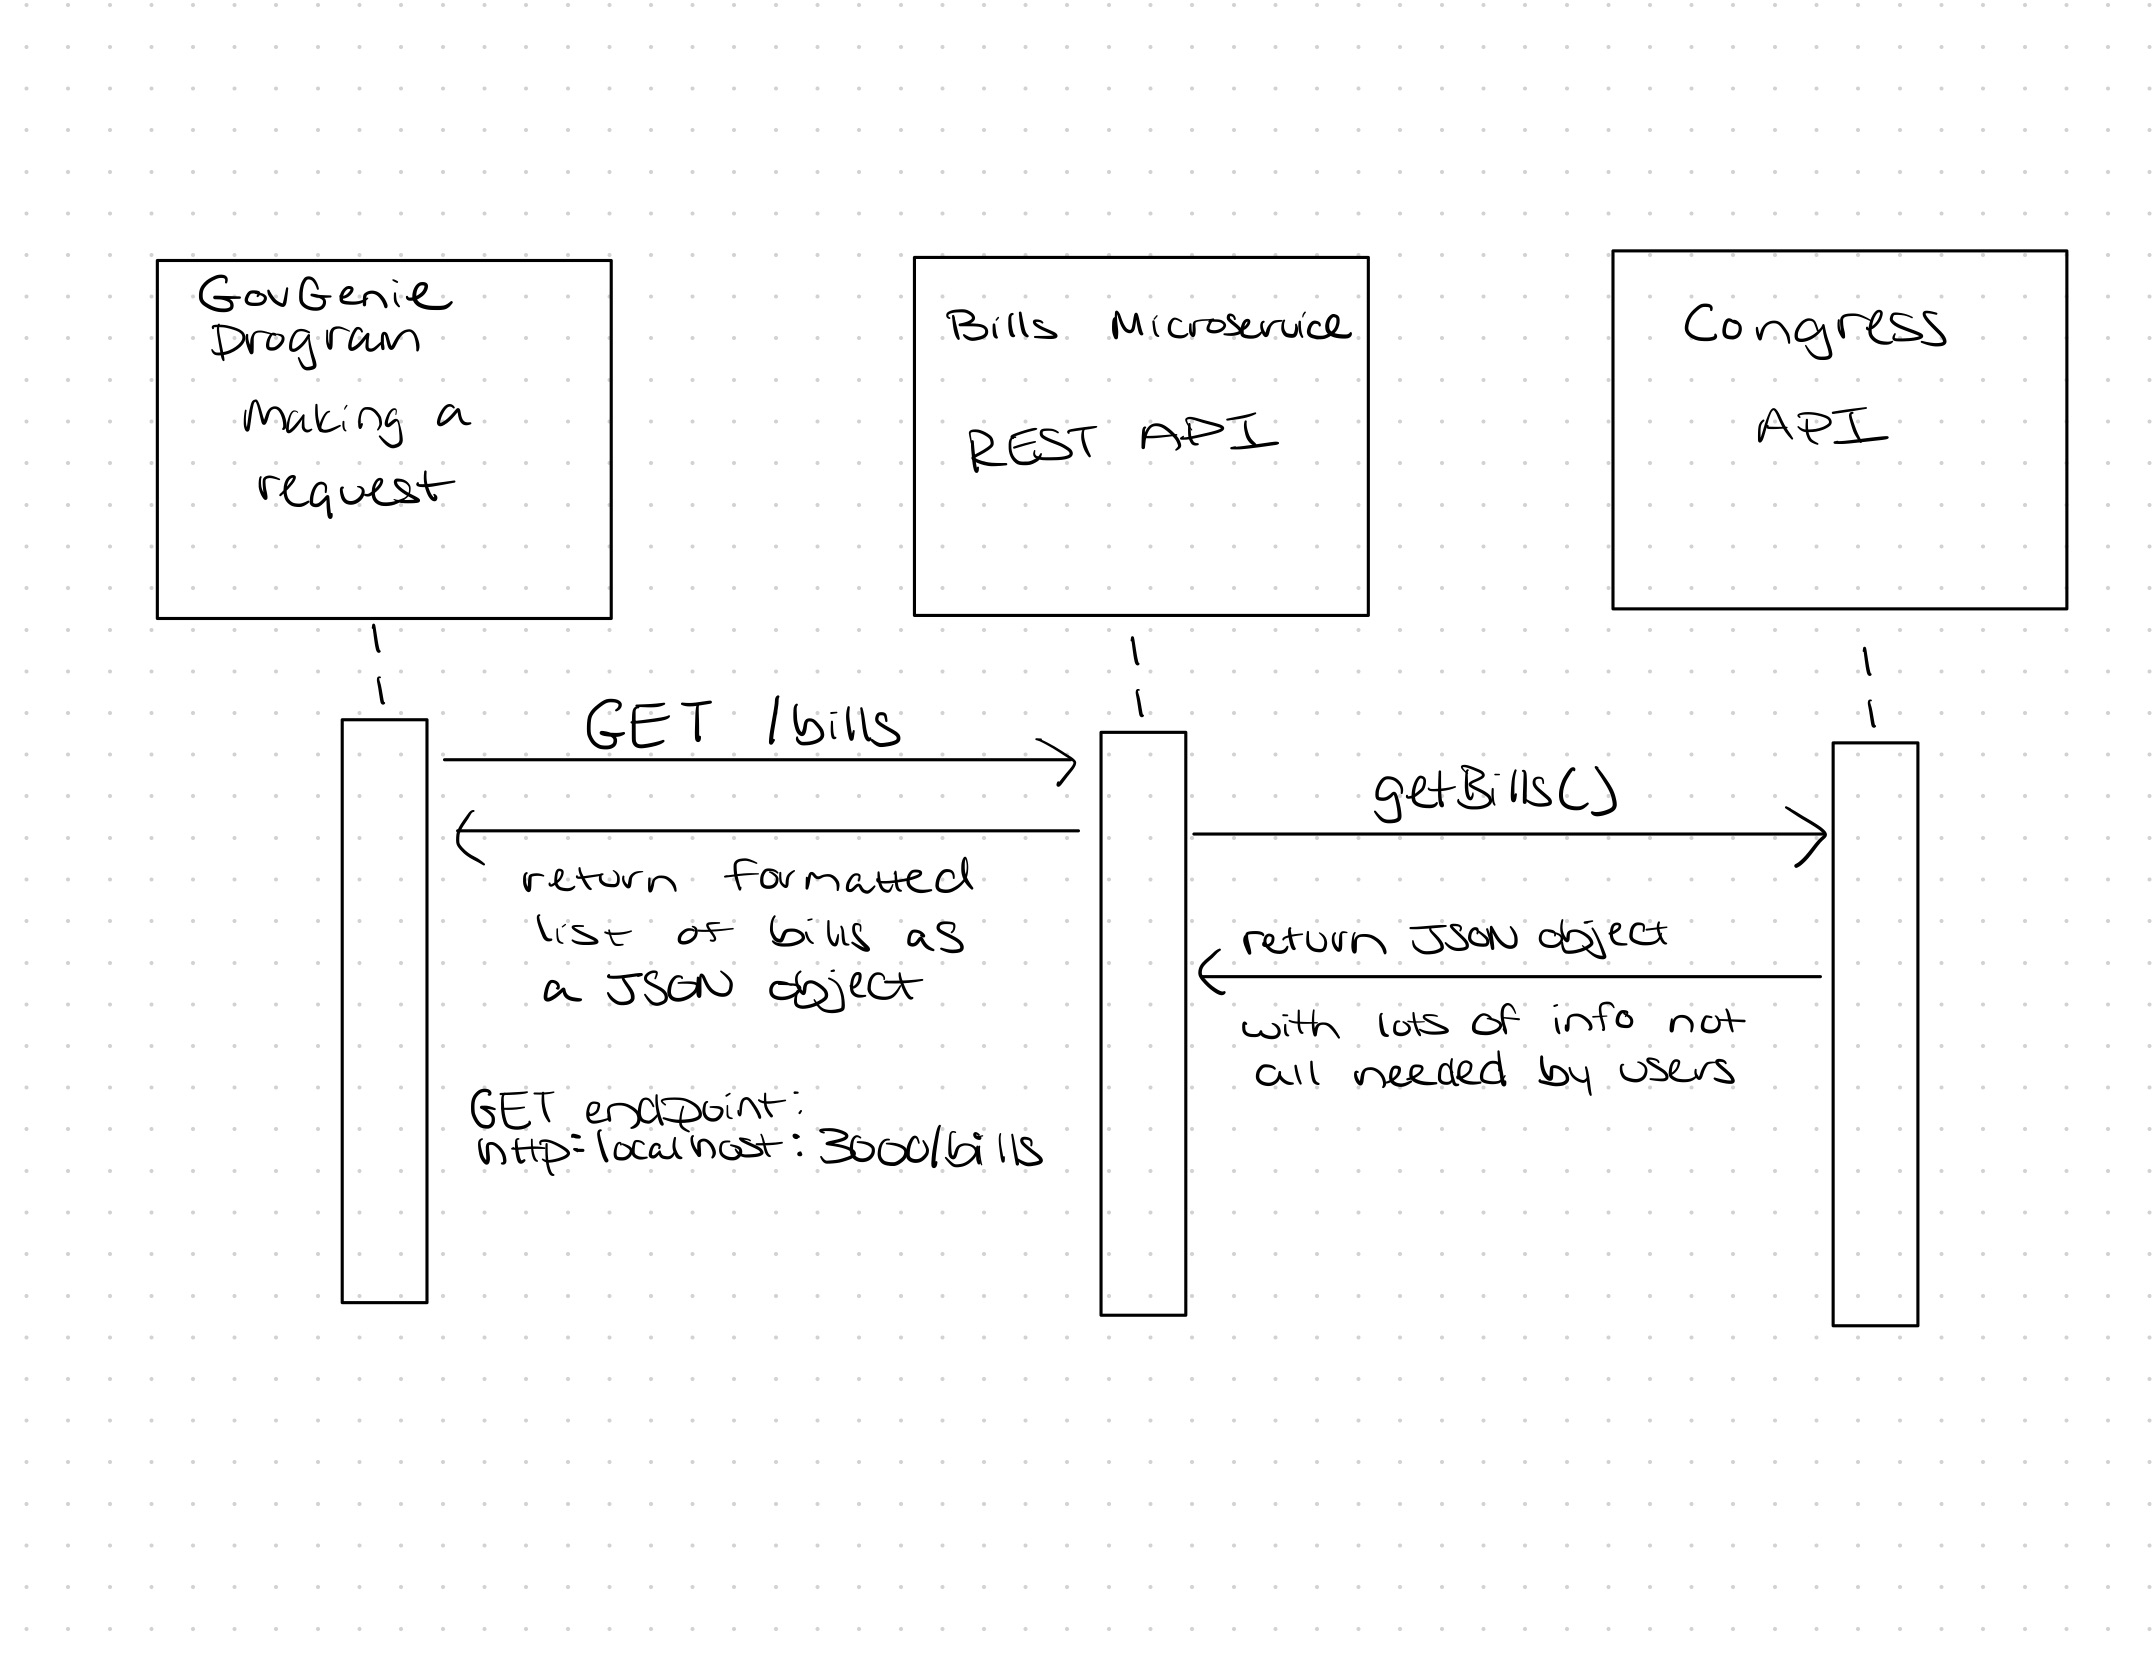 GovGenie
Program
Making a
request
Bills Microservice
REST API
Congress
API
GET /bills
return formated
list of bills as
a JSON object
GET endpoint:
http:localhost:3000/bills
getBills()
return JSON object
with lots of info not
all needed by users